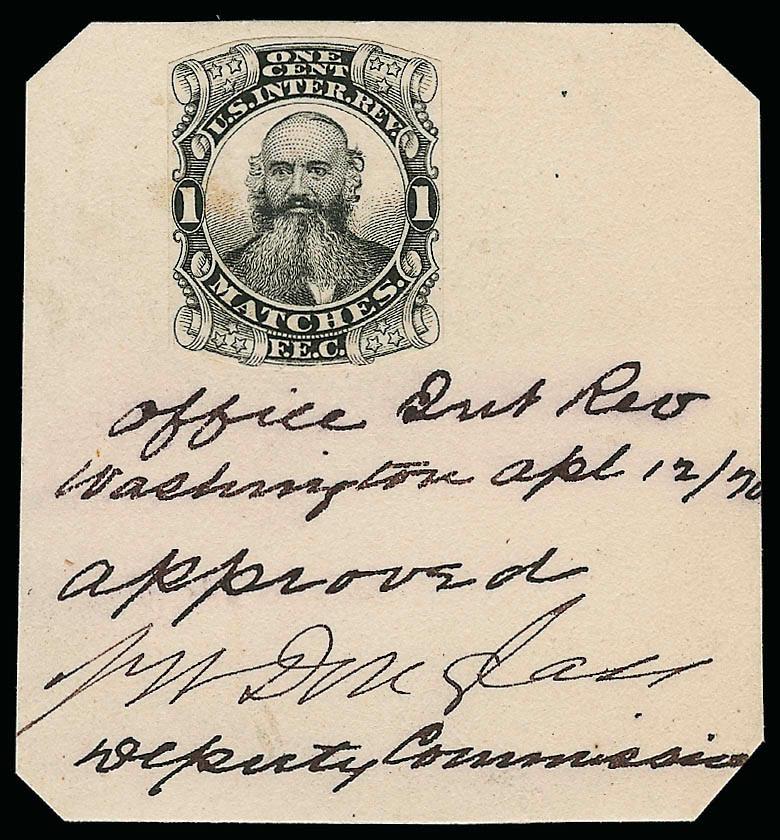 ONE
CENT
U.S. INTER. REV.
1 1
MATCHES.
F.E.C.
Office Int Rev
Washington Apl 12/70
Approved
J W Douglass
Deputy Commissio